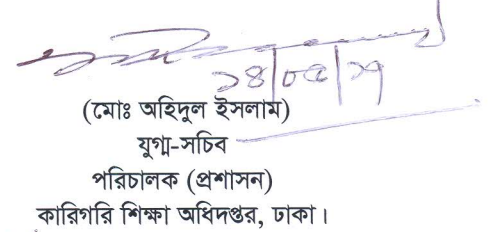 ১৪/০৫/১৭
(মোঃ অহিদুল ইসলাম)
যুগ্ম-সচিব
পরিচালক (প্রশাসন)
কারিগরি শিক্ষা অধিদপ্তর, ঢাকা।